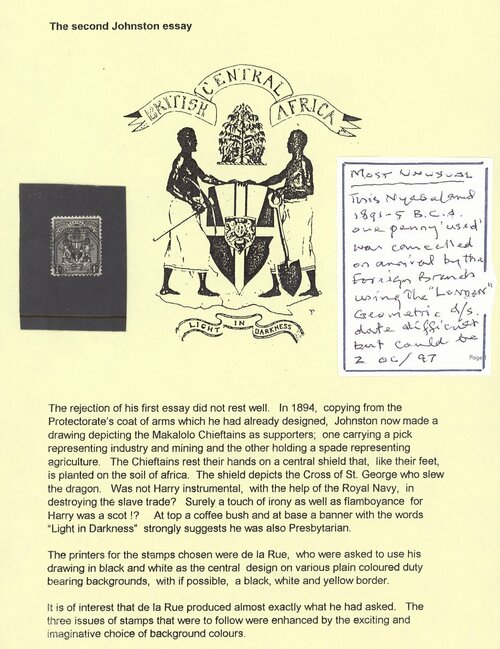 The second Johnston essay
BRITISH CENTRAL AFRICA
LIGHT IN DARKNESS
MOST UNUSUAL
This Nyasaland
1891-5 B.C.A.
one penny 'used'
was cancelled
on arrival by the
Foreign Branch
using The "London"
Geometric d/s.
date difficult
but could be
2 OC/97
Page
The rejection of his first essay did not rest well. In 1894, copying from the
Protectorate's coat of arms which he had already designed, Johnston now made a
drawing depicting the Makalolo Chieftains as supporters; one carrying a pick
representing industry and mining and the other holding a spade representing
agriculture. The Chieftains rest their hands on a central shield that, like their feet,
is planted on the soil of africa. The shield depicts the Cross of St. George who slew
the dragon. Was not Harry instrumental, with the help of the Royal Navy, in
destroying the slave trade? Surely a touch of irony as well as flamboyance for
Harry was a scot !? At top a coffee bush and at base a banner with the words
"Light in Darkness" strongly suggests he was also Presbytarian.
The printers for the stamps chosen were de la Rue, who were asked to use his
drawing in black and white as the central design on various plain coloured duty
bearing backgrounds, with if possible, a black, white and yellow border.
It is of interest that de la Rue produced almost exactly what he had asked. The
three issues of stamps that were to follow were enhanced by the exciting and
imaginative choice of background colours.